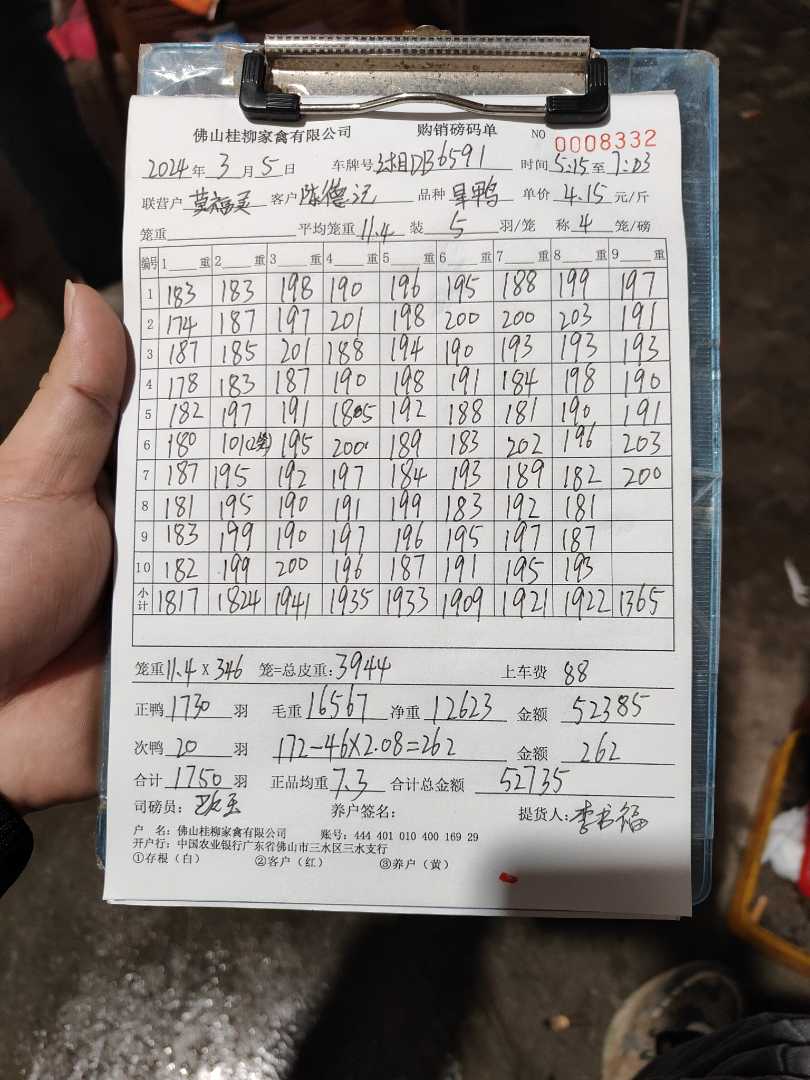 佛山桂柳家禽有限公司 购销磅码单 NO 0008332
2024年3月5日 车牌号 DB6591 时间5:15至7:03
联营户 莫福灵 客户 陈德记 品种 旱鸭 单价 4.15 元/斤
笼重 平均笼重 11.4 装 5 羽/笼 称 4 笼/磅
编号 1 重 2 重 3 重 4 重 5 重 6 重 7 重 8 重 9 重
1 183 183 198 190 196 195 188 199 197
2 174 187 197 201 198 200 200 203 191
3 187 185 201 188 194 190 193 193 193
4 178 183 187 190 198 191 184 198 190
5 182 197 191 185 192 188 181 190 191
6 180 101(2笼) 195 200 189 183 202 196 203
7 187 195 192 197 184 193 189 182 200
8 181 195 190 191 199 183 192 181
9 183 199 190 197 196 195 197 187
10 182 199 200 196 187 191 195 193
小计 1817 1824 1941 1935 1933 1909 1921 1922 1365
笼重 11.4 X 346 笼=总皮重: 3944 上车费 88
正鸭 1730 羽 毛重 16567 净重 12623 金额 52385
次鸭 20 羽 172-46X2.08=262 金额 262
合计 1750 羽 正品均重 7.3 合计总金额 52735
司磅员: 养户签名: 提货人: 李书福
户 名: 佛山桂柳家禽有限公司 账号: 444 401 010 400 169 29
开户行: 中国农业银行广东省佛山市三水区三水支行
①存根(白) ②客户(红) ③养户(黄)